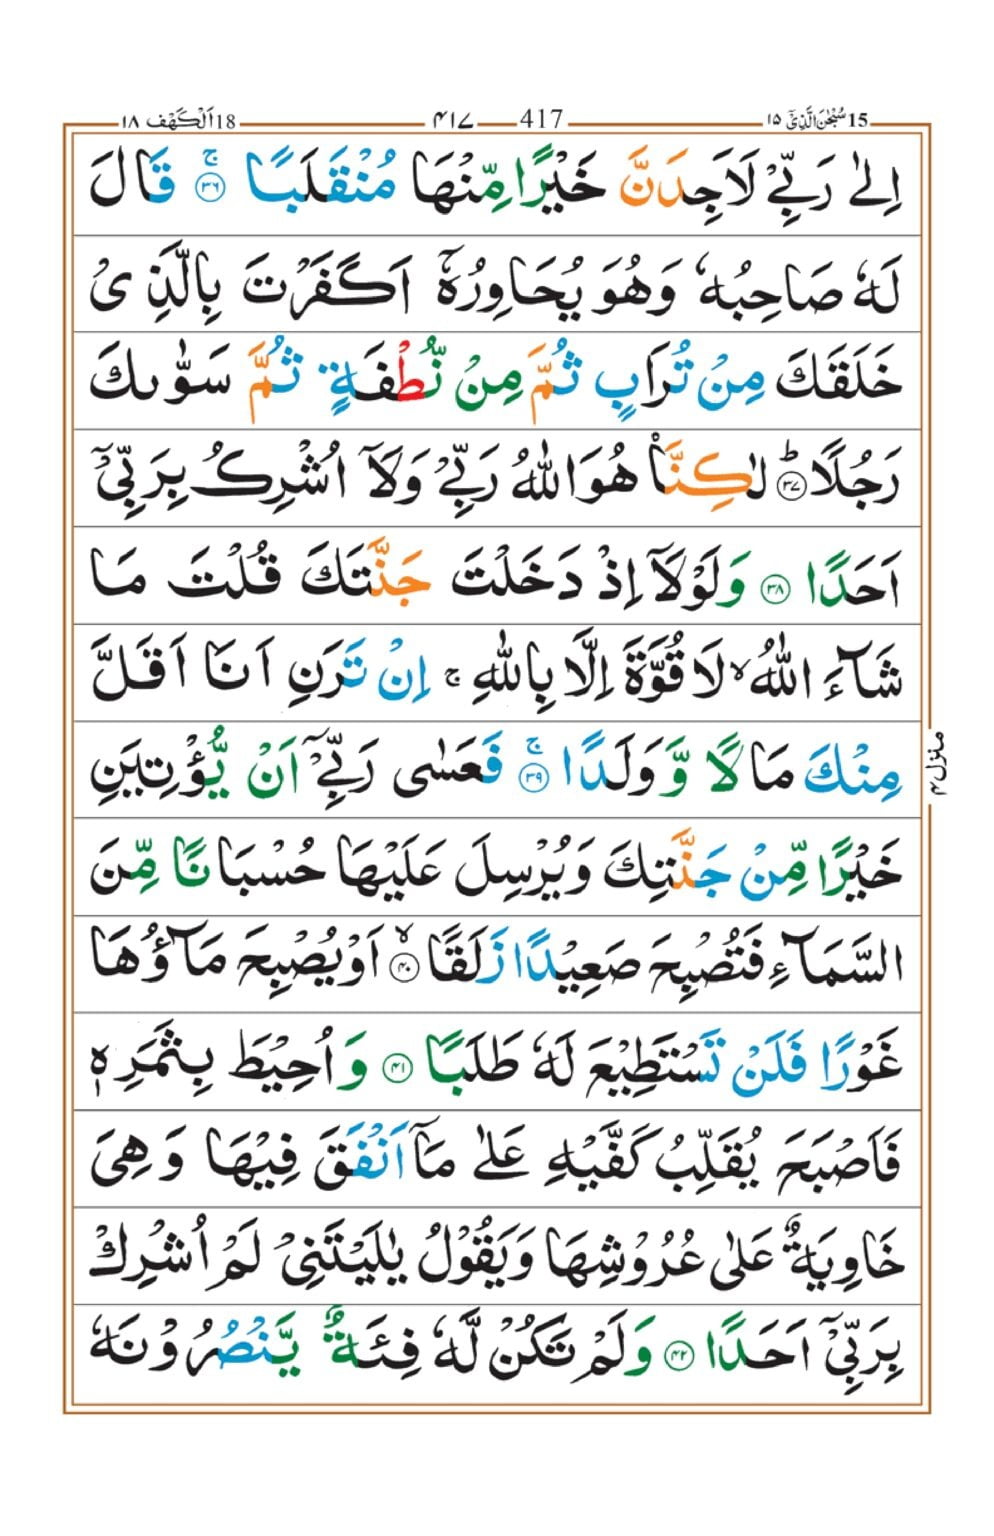 15 سُبْحٰنَ الَّذِیْۤ ۱۵ 417 ۴۱۷ 18 اَلْكَهْف ۱۸
اِلٰى رَبِّیْ لَاَجِدَنَّ خَیْرًا مِّنْهَا مُنْقَلَبًا ۚ ﴿۳۶﴾ قَالَ
لَهٗ صَاحِبُهٗ وَهُوَ یُحَاوِرُهٗۤ اَكَفَرْتَ بِالَّذِیْ
خَلَقَكَ مِنْ تُرَابٍ ثُمَّ مِنْ نُّطْفَةٍ ثُمَّ سَوّٰىكَ
رَجُلًا ؕ ﴿۳۷﴾ لٰكِنَّا۠ هُوَ اللّٰهُ رَبِّیْ وَلَاۤ اُشْرِكُ بِرَبِّیْۤ
اَحَدًا ﴿۳۸﴾ وَلَوْلَاۤ اِذْ دَخَلْتَ جَنَّتَكَ قُلْتَ مَا
شَآءَ اللّٰهُ ۙ لَا قُوَّةَ اِلَّا بِاللّٰهِ ۚ اِنْ تَرَنِ اَنَا اَقَلَّ
مِنْكَ مَالًا وَّ وَلَدًا ۚ ﴿۳۹﴾ فَعَسٰى رَبِّیْۤ اَنْ یُّؤْتِیَنِ
خَیْرًا مِّنْ جَنَّتِكَ وَیُرْسِلَ عَلَیْهَا حُسْبَانًا مِّنَ
السَّمَآءِ فَتُصْبِحَ صَعِیْدًا زَلَقًا ۙ ﴿۴۰﴾ اَوْ یُصْبِحَ مَآؤُهَا
غَوْرًا فَلَنْ تَسْتَطِیْعَ لَهٗ طَلَبًا ﴿۴۱﴾ وَاُحِیْطَ بِثَمَرِهٖ
فَاَصْبَحَ یُقَلِّبُ كَفَّیْهِ عَلٰى مَاۤ اَنْفَقَ فِیْهَا وَهِیَ
خَاوِیَةٌ عَلٰى عُرُوْشِهَا وَیَقُوْلُ یٰلَیْتَنِیْ لَمْ اُشْرِكْ
بِرَبِّیْۤ اَحَدًا ﴿۴۲﴾ وَلَمْ تَكُنْ لَّهٗ فِئَةٌ یَّنْصُرُوْنَهٗ
منزل ۴